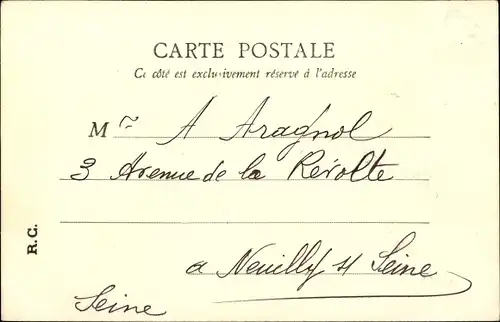 CARTE POSTALE
Ce côté est exclusivement réservé à l'adresse
Mr A Aragnol
3 Avenue de la Révolte
R. C.
a Neuilly s/ Seine
Seine